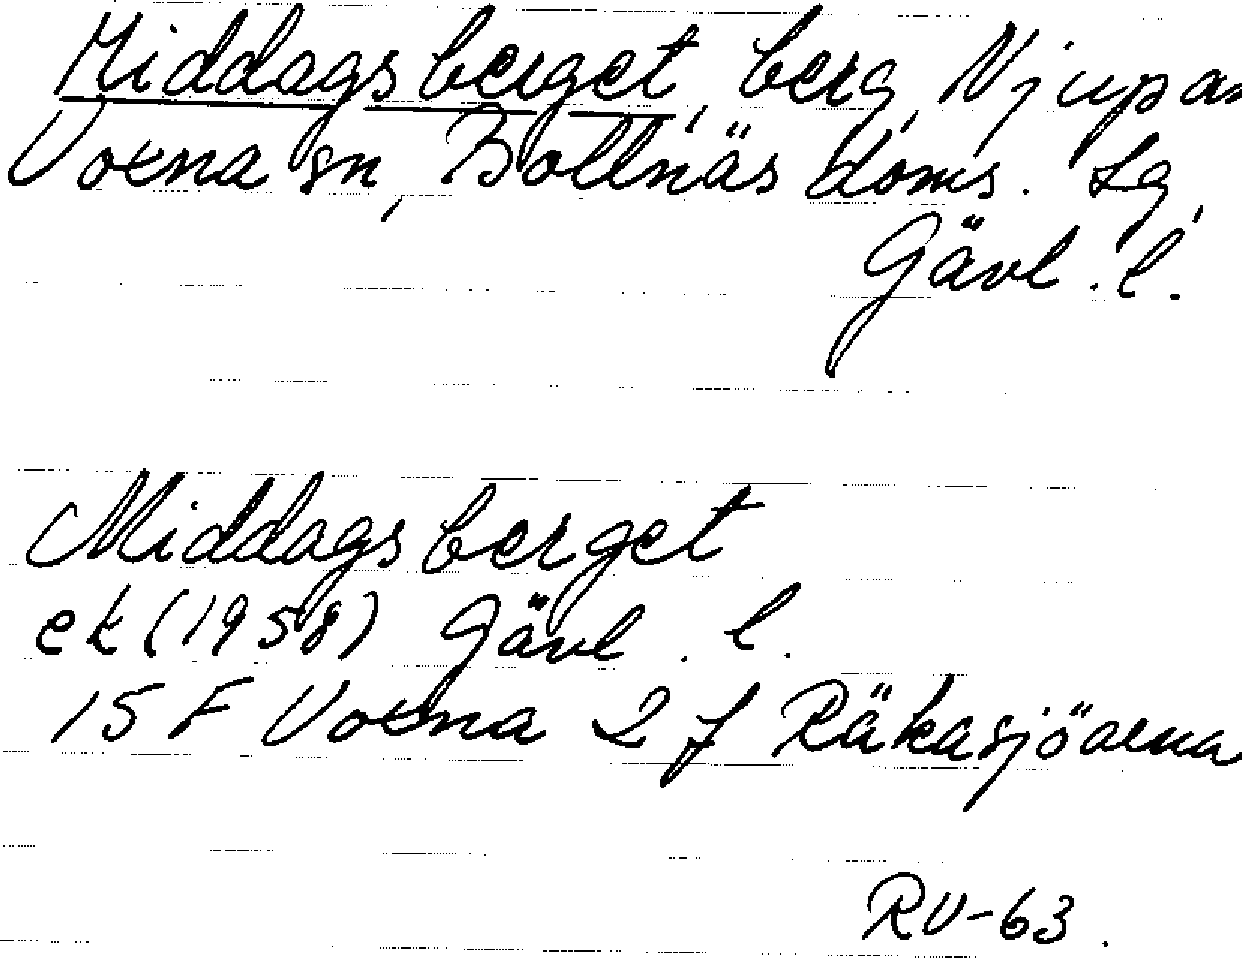 Middagsberget, berg, Njupan
Voxna sn, Bollnäs doms. lg,
Gävl. l.
Middagsberget
ek (1958) Gävl. l.
15 F Voxna 2 f Räkasjöarna
RV-63.